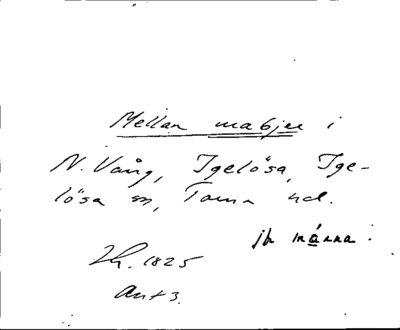 Mellan mabjer i
N. Vång, Igelösa, Ige-
lösa sn, Torna hd.
jb mánna.
1825
Ant 3.